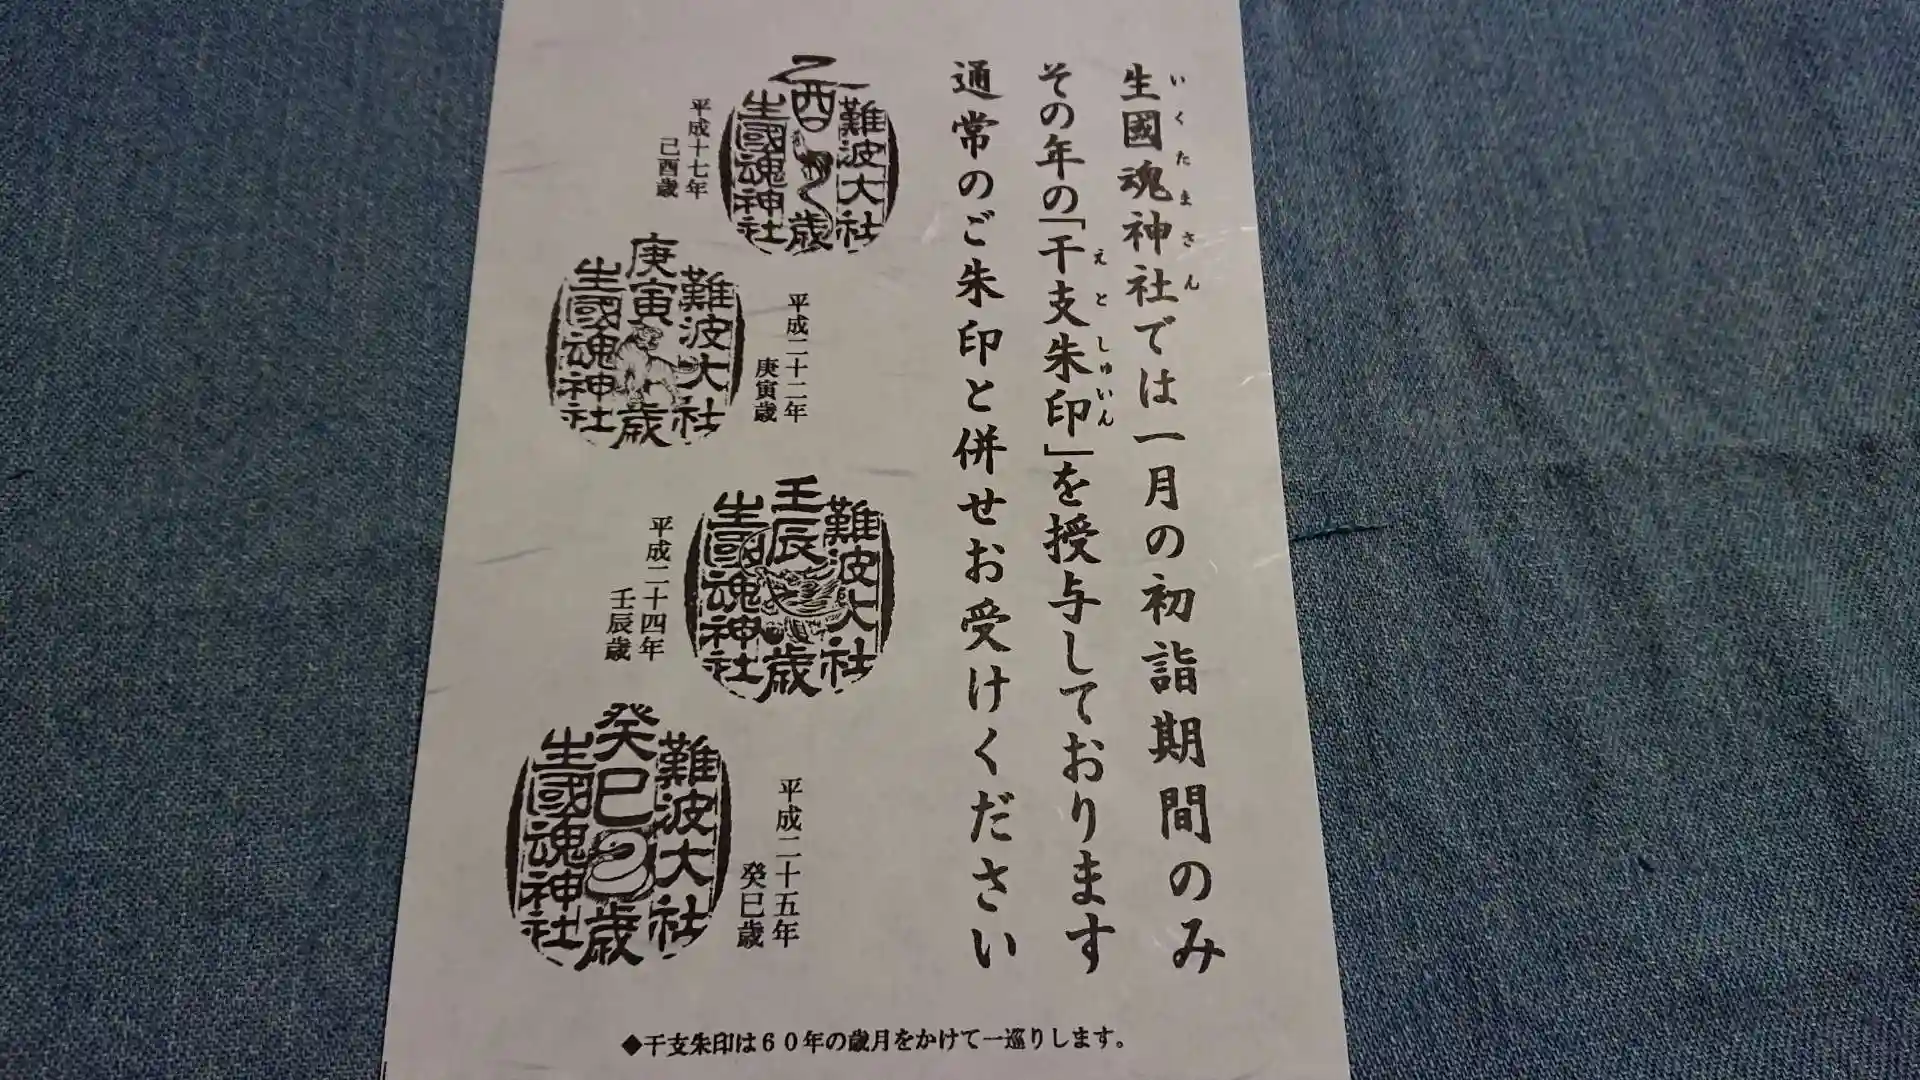 生國魂神社では一月の初詣期間のみ
いくたまさん
その年の「干支朱印」を授与しております
えとしゅいん
通常のご朱印と併せお受けください
難波大社
乙酉歳
生國魂神社
平成十七年
己酉歳
平成二十二年
庚寅歳
難波大社
庚寅歳
生國魂神社
難波大社
壬辰歳
生國魂神社
平成二十四年
壬辰歳
平成二十五年
癸巳歳
難波大社
癸巳歳
生國魂神社
◆干支朱印は60年の歳月をかけて一巡りします。